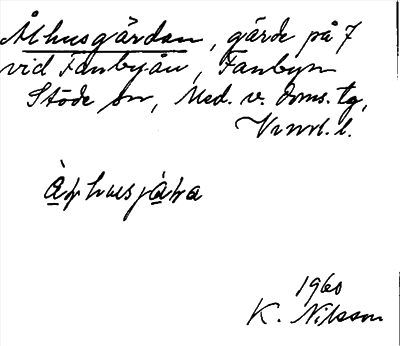 Ålhusgärdan, gärde på 7
vid Fanbyån, Fanbyn
Stöde sn, Med. v. doms. tg,
Vnrl. l.
1960
K. Nilsson